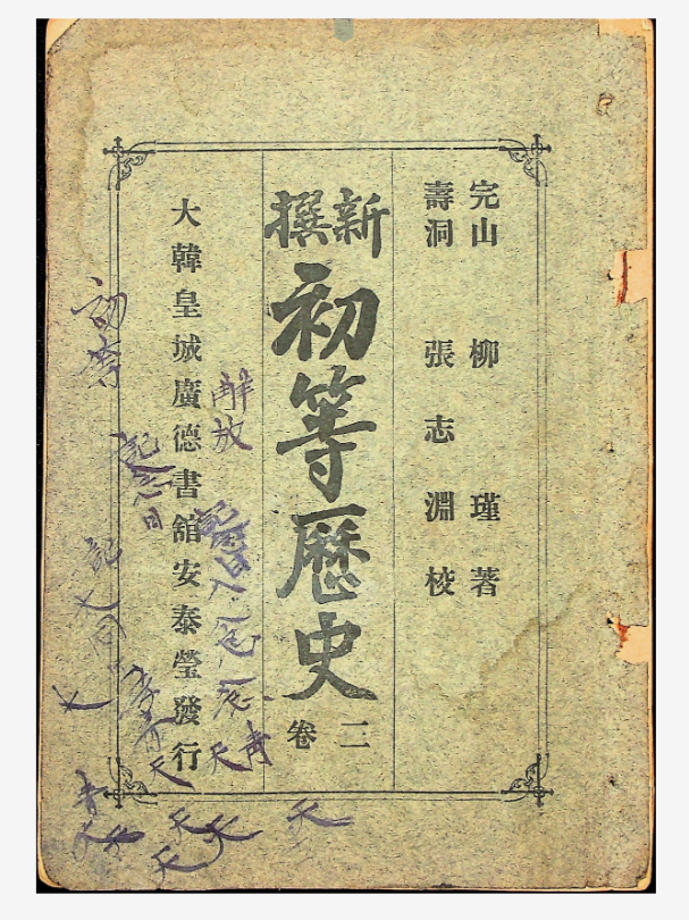 完山 柳瑾 著
壽洞 張志淵 校
新撰
初等歷史
卷二
大韓皇城廣德書舘安泰瑩發行
解放
記念日
初等
天
天
天
天
天